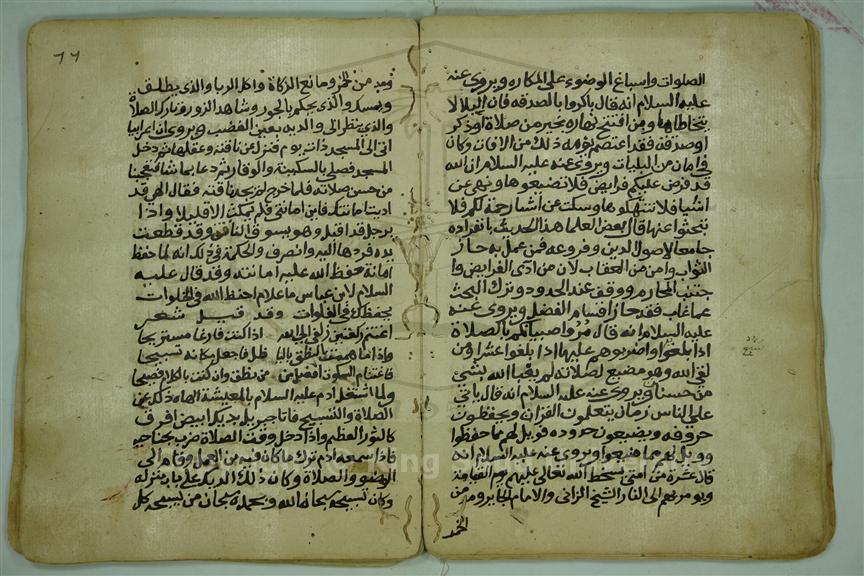 الصلوات واسباغ الوضوء على المكاره ويروى عنه
عليه السلام انه قال باكروا بالصدقه فان البلا لا
يتخاطاها ومن افتتح نهاره بخير من صلاة او ذكر
او صدقه فقد اعتصم يومه ذلك من الافات وكان
في امان من البليات ويروى عنه عليه السلام ان الله
قد فرض عليكم فرايض فلا تضيعوها ونهى عن
اشيا فلا تنتهكوها وسكت عن اشيا رحمة لكم فلا
تبحثوا عنها قال بعض العلما هذا الحديث بانفراده
جامعا لاصول الدين وفروعه فمن عمل به حاز
الثواب وامن من العقاب لان من ادى الفرايض وا
جتنب المحارم ووقف عند الحدود وترك البحث
عما غاب فقد حاز اقسام الفضل ويروى عنه
عليه السلام انه قال مروا صبيانكم بالصلاة
اذا بلغوا واضربوهم عليها اذا بلغوا عشرا ومن
لقى الله وهو مضيع لصلاته لم يعبا الله بشي
من حسناته ويروى عنه عليه السلام انه قال ياتي
على الناس زمان يتعلمون القران ويحفظون
حروفه ويضيعون حدوده فويل لهم مما حفظوا
وويل لهم مما ضيعوا ويروى عنه عليه السلام انه
قال عشرة من امتي يسخط الله تعالى عليهم يوم القيامة
ويومر بهم الى النار الشيخ الزاني والامام الجاير ومدمن
الخمر
ومدمن الخمر ومانع الزكاة واكل الربا والذي يطلق
ويمسك والذي يحكم بالجور وشاهد الزور وتارك الصلاة
والذي ينظر الى والديه بعين الغضب ويروى ان اعرابيا
اتى الى المسجد ذات يوم فنزل عن ناقته وعقلها ثم دخل
المسجد فصلى بالسكينة والوقار ثم دعا بما شا فتعجبنا
من حسن صلاته فلما خرج لم يجد ناقته فقال الهي قد
اديت امانتك فاين امانتي فلم يمكث الا قليلا واذا
برجل قد اقبل وهو يسوق الناقة وقد قطعت
يده فردها اليه وانصرف والحكمة في ذلك انه لما حفظ
امانة حفظ الله عليه امانته وقد قال عليه
السلام لابن عباس يا غلام احفظ الله في الخلوات
يحفظك في الفلوات وقد قيل شعر
اغتنم ركعتين زلفى الى الله اذا كنت فارغا مستريحا
واذا ما هممت بالنطق بالباطل فاجعل مكانه تسبيحا
فاغتنام السكوت افضل من نطق وان كنت بالكلام فصيحا
ولما اشتغل ادم عليه السلام بالمعيشة الهاه ذلك عن
الصلاة والتسبيح فاتا جبريل بديك ابيض افرق
كالثور العظيم واذا دخل وقت الصلاة ضرب بجناحيه
فاذا سمعه ادم ترك ما كان فيه من العمل وقام الى
الوضو والصلاة وكان ذلك الديك على باب منزله
وكان تسبيحه سبحان الله وبحمده سبحان من يسبحه كل